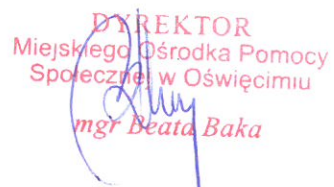 DYREKTOR
Miejskiego Ośrodka Pomocy
Społecznej w Oświęcimiu
mgr Beata Baka